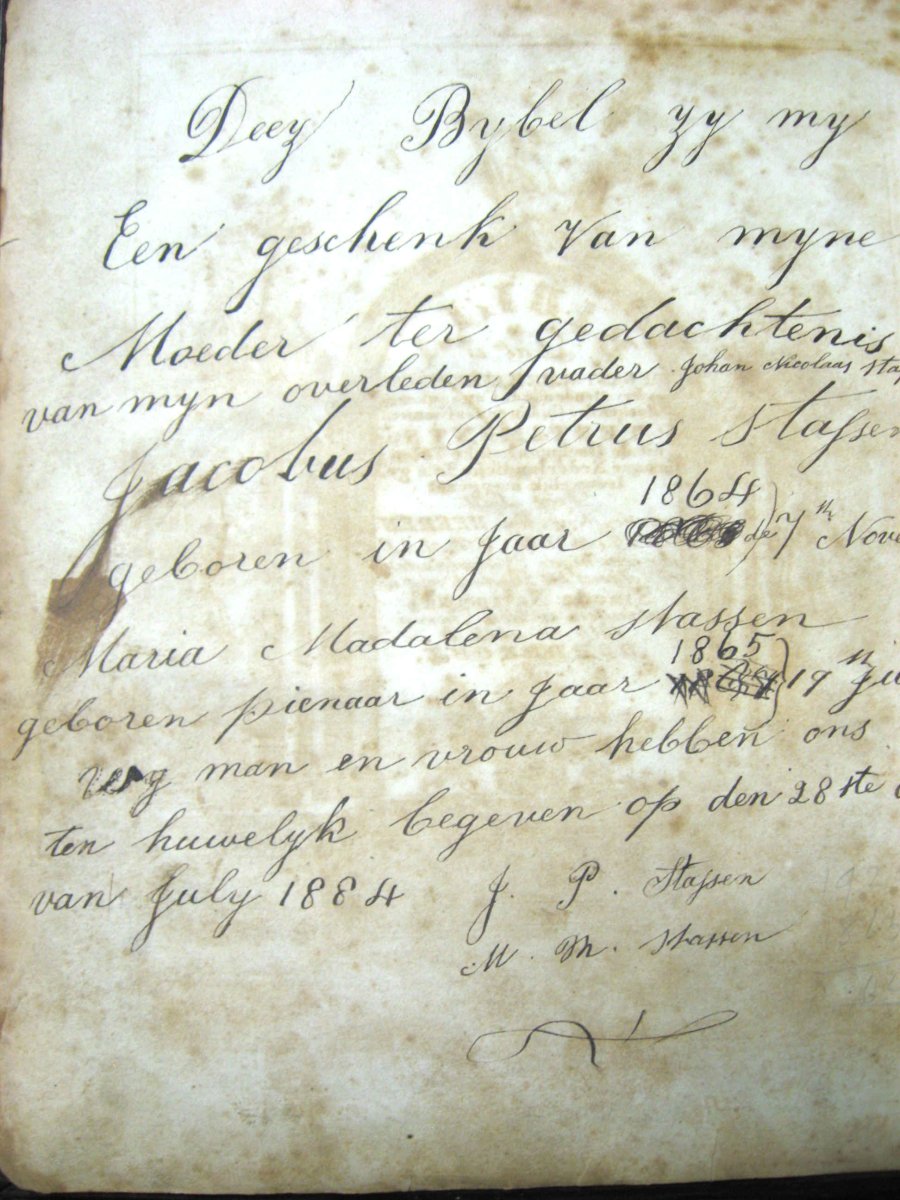 Deez Bybel zy my
Een geschenk van myne
Moeder ter gedachtenis
van myn overleden vader Johan Nicolaas Sta
Jacobus Petrus Stassen
1864
geboren in Jaar de 7th Nove
Maria Madalena Stassen
1865
geboren pienaar in Jaar 19th Ju
man en vrouw hebben ons
ten huwelyk begeven op den 28ste
van July 1884 J. P. Stassen
M. M. Stassen